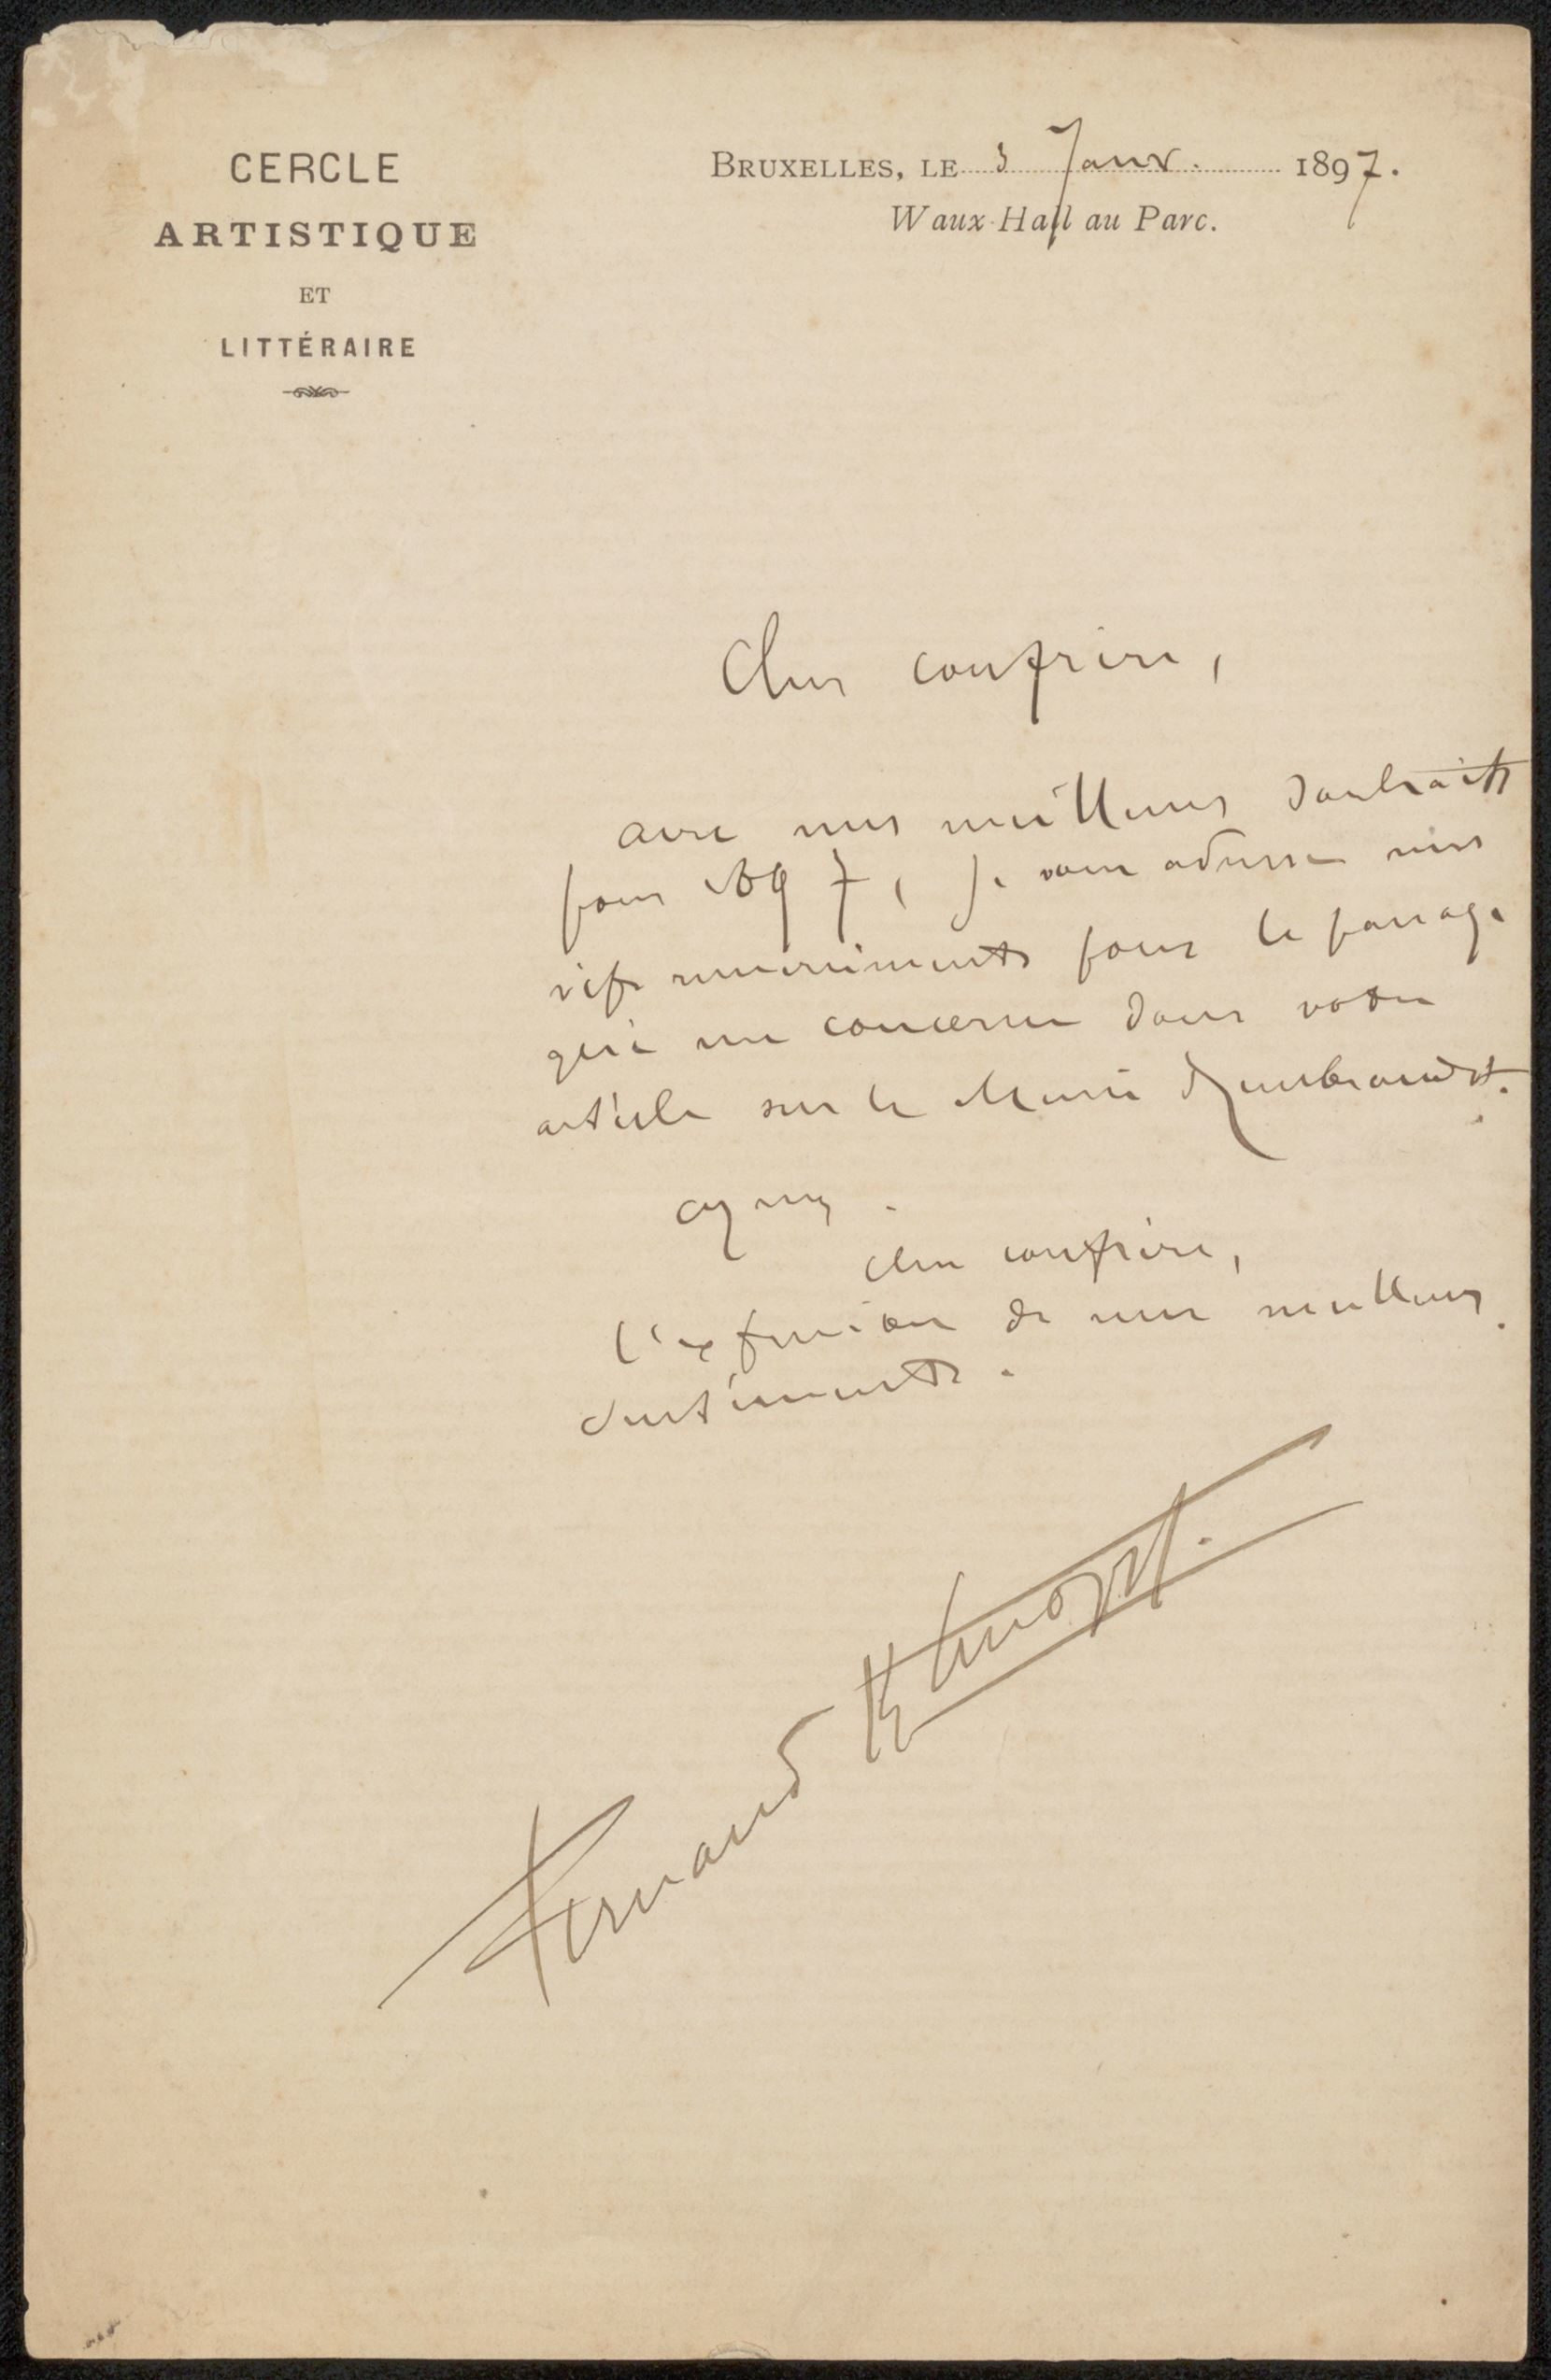 CERCLE
ARTISTIQUE
ET
LITTÉRAIRE
BRUXELLES, LE 3 Janv. 1897.
Waux-Hall au Parc.
Cher confrère,
avec mes meilleurs souhaits
pour 1897, je vous adresse mes
vifs remerciements pour le passage
qui me concerne dans votre
article sur le Musée Rembrandt.
Agréez.
cher confrère,
l'expression de mes meilleurs
sentiments.
Fernand Khnopff.